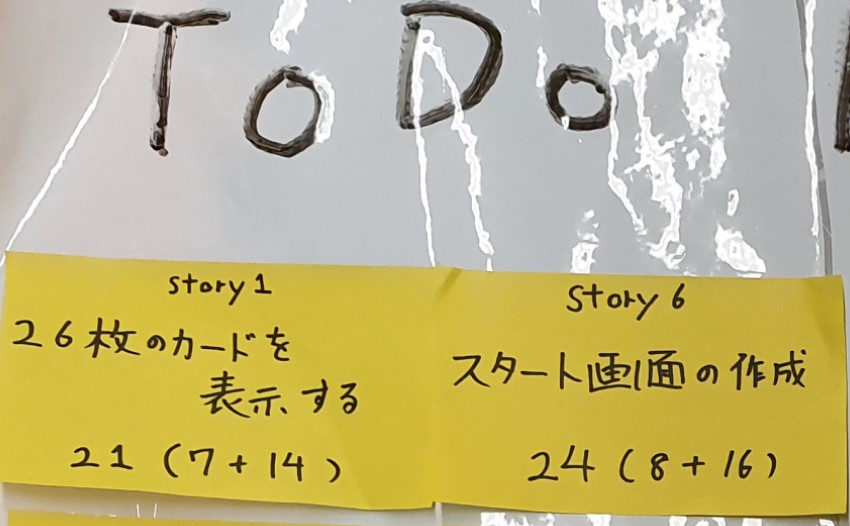 ToDo
story 1
26枚のカードを
表示する
21 (7+14)
Story 6
スタート画面の作成
24 (8+16)